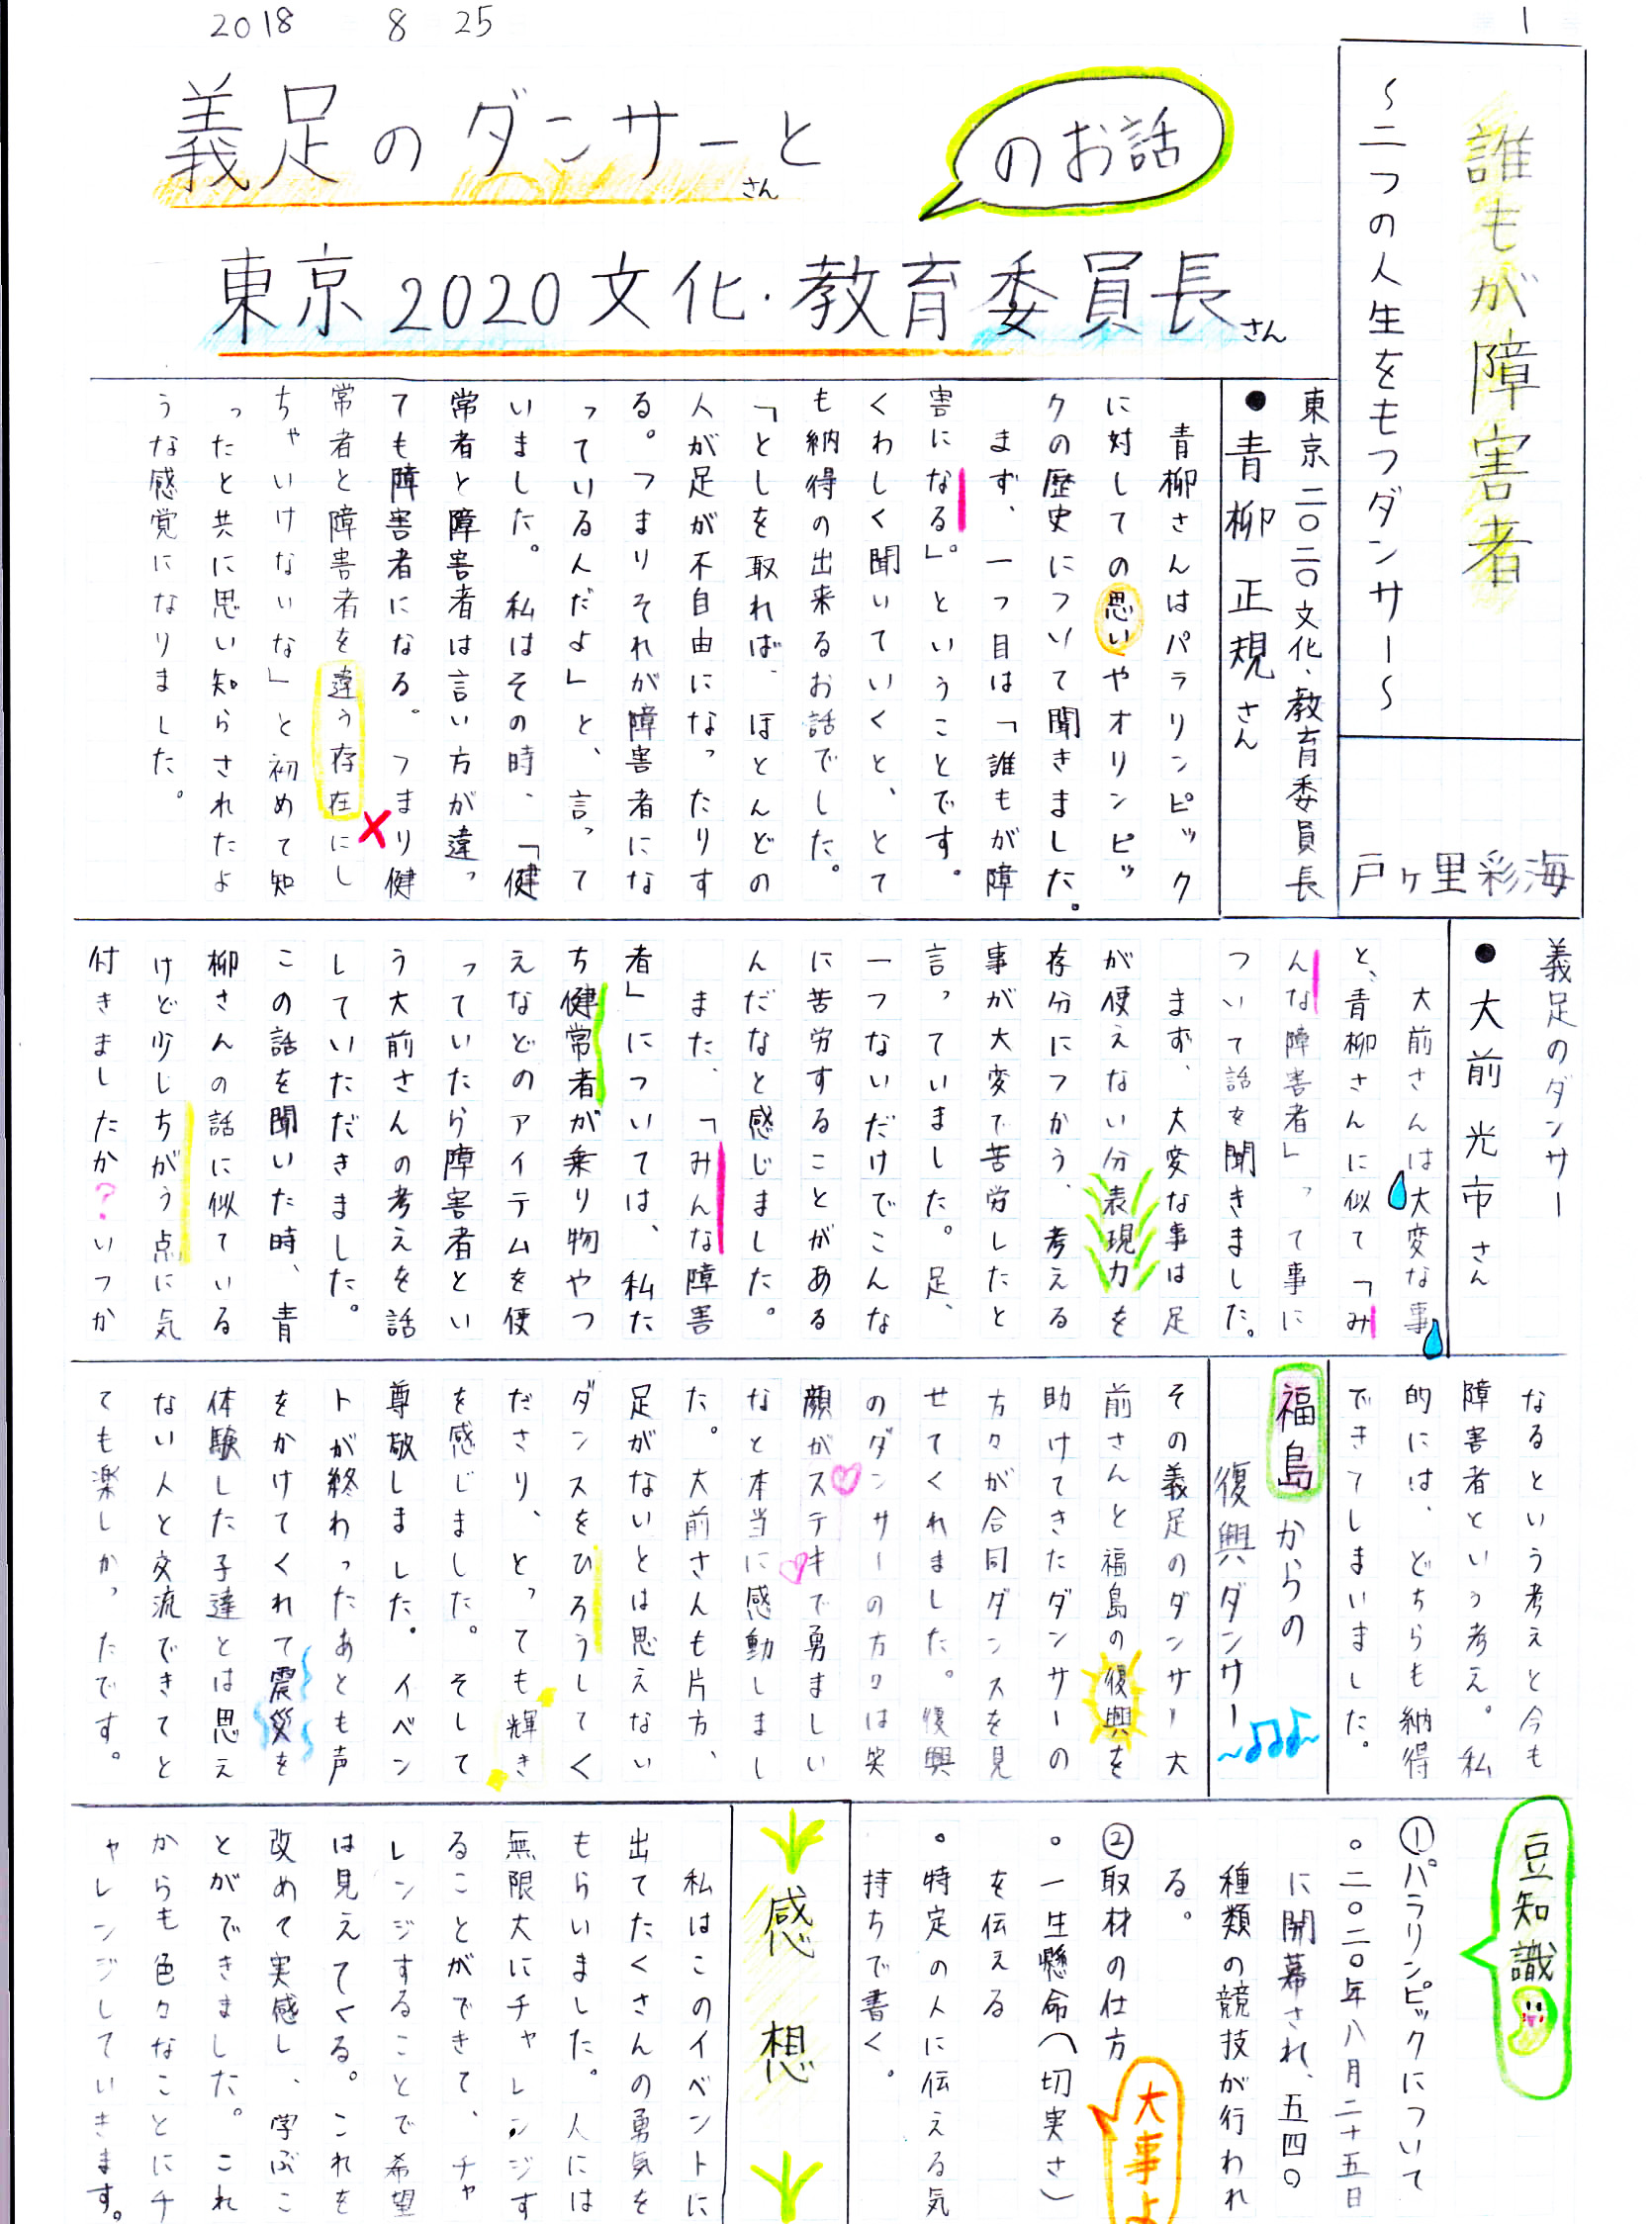 2018 8 25
1
誰もが障害者
〜二つの人生をもつダンサー〜
戸ヶ里彩海
義足のダンサーさんと
東京2020文化・教育委員長さん
のお話
東京二〇二〇文化、教育委員長
●青柳 正規さん
青柳さんはパラリンピック
に対しての思いやオリンピッ
クの歴史について聞きました。
まず、一つ目は「誰もが障
害になる」。ということです。
くわしく聞いていくと、とて
も納得の出来るお話でした。
「としを取れば、ほとんどの
人が足が不自由になったりす
る。つまりそれが障害者にな
っている人だよ」と、言って
いました。私はその時、「健
常者と障害者は言い方が違っ
ても障害者になる。つまり健
常者と障害者を違う存在にし
ちゃいけないな」と初めて知
ったと共に思い知らされたよ
うな感覚になりました。
義足のダンサー
●大前 光市さん
大前さんは大変な事
と、青柳さんに似て「み
んな障害者」って事に
ついて話を聞きました。
まず、大変な事は足
が使えない分表現力を
存分につかう、考える
事が大変で苦労したと
言っていました。足、
一つないだけでこんな
に苦労することがある
んだなと感じました。
また、「みんな障害
者」については、私た
ち健常者が乗り物やつ
えなどのアイテムを使
っていたら障害者とい
う大前さんの考えを話
していただきました。
この話を聞いた時、青
柳さんの話に似ている
けど少しちがう点に気
付きましたか?いつか
なるという考えと今も
障害者という考え。私
的には、どちらも納得
できてしまいました。
福島からの
復興ダンサー
その義足のダンサー大
前さんと福島の復興を
助けてきたダンサーの
方々が合同ダンスを見
せてくれました。復興
のダンサーの方々は笑
顔がステキで勇ましい
なと本当に感動しまし
た。大前さんも片方、
足がないとは思えない
ダンスをひろうしてく
ださり、とっても輝き
を感じました。そして
尊敬しました。イベン
トが終わったあとも声
をかけてくれて震災を
体験した子達とは思え
ない人と交流できてと
ても楽しかったです。
豆知識
①パラリンピックについて
。二〇二〇年八月二十五日
に開幕され、五四〇
種類の競技が行われ
る。
②取材の仕方
大事よ
。一生懸命(切実さ)
を伝える
。特定の人に伝える気
持ちで書く。
感想
私はこのイベントに
出てたくさんの勇気を
もらいました。人には
無限大にチャレンジす
ることができて、チャ
レンジすることで希望
は見えてくる。これを
改めて実感し、学ぶこ
とができました。これ
からも色々なことにチ
ャレンジしていきます。